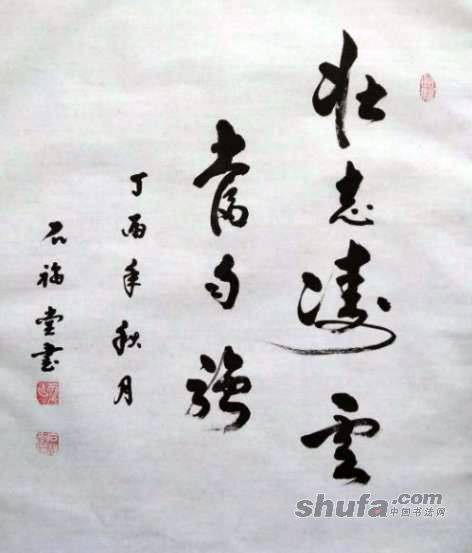 壮志凌云
奮自強
丁酉年秋月
石福堂書
shufa.com
中国书法网